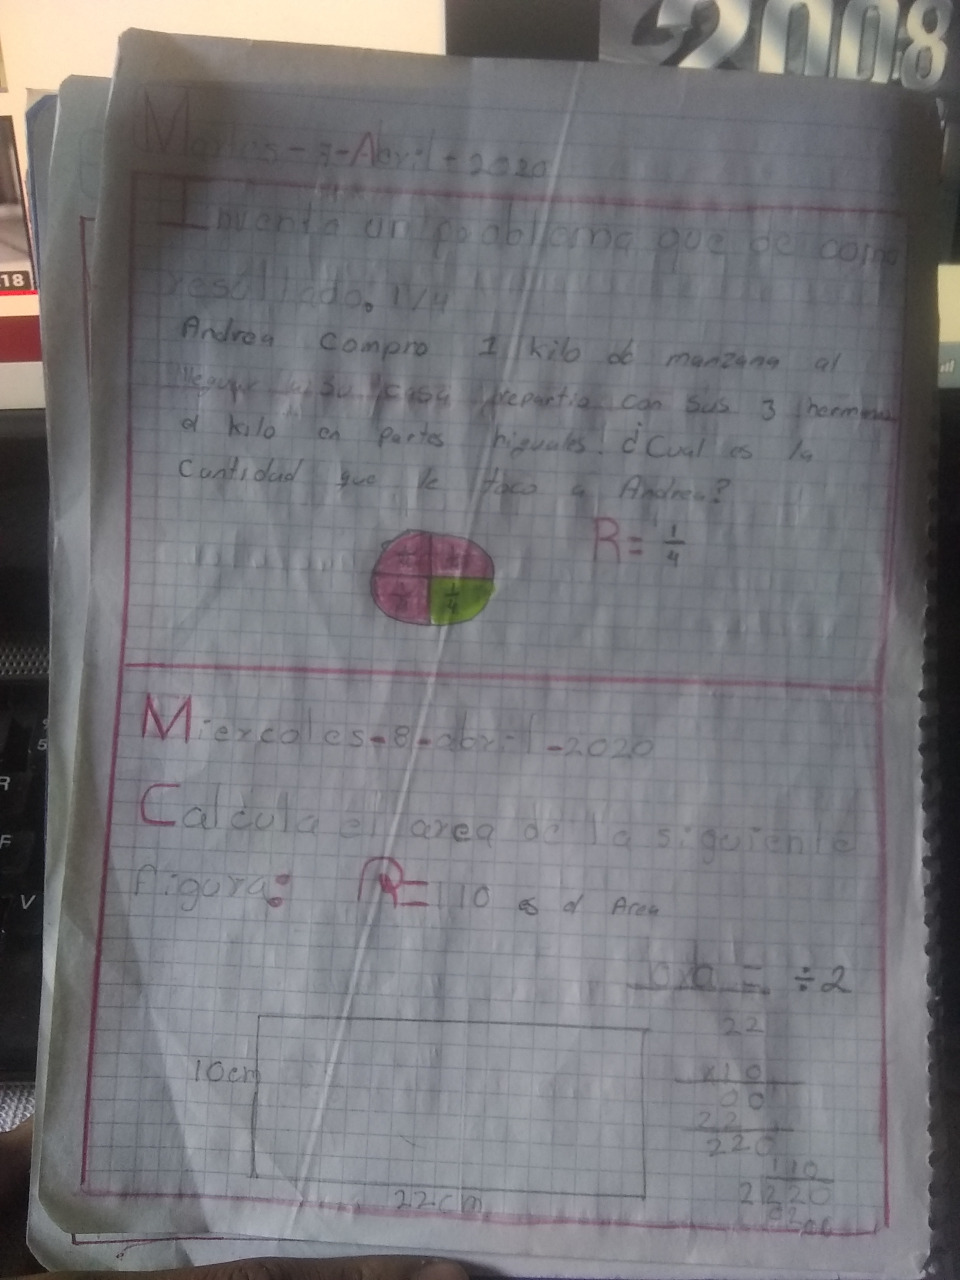 2008
18
Martes-7-Abril-2020
Inventa un problema que de como
resultado. 1/4
Andrea compro 1 kilo de manzana al
llegar a su casa repartio con sus 3 hermanos
el kilo en partes higuales. ¿Cual es la
Cantidad que le toco a Andrea?
R= 1/4
1/4 1/4
1/4 1/4
Miercoles-8-abril-2020
Calcula el area de la siguiente
figura: R=110 es el Area
bxa = ÷2
22
x10
00
22
220
110
2 220
10cm
22cm
R
F
V
5